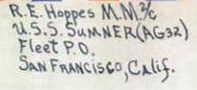 R.E. Hoppes M.M.2/c
U.S.S. SUMNER (AG32)
Fleet P.O.
SAN FRANCISCO, CALIF.